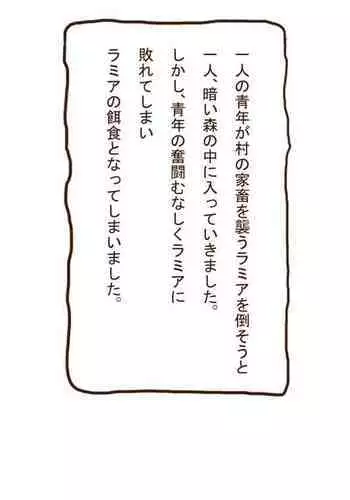 一人の青年が村の家畜を襲うラミアを倒そうと
一人、暗い森の中に入っていきました。
しかし、青年の奮闘むなしくラミアに
敗れてしまい
ラミアの餌食となってしまいました。